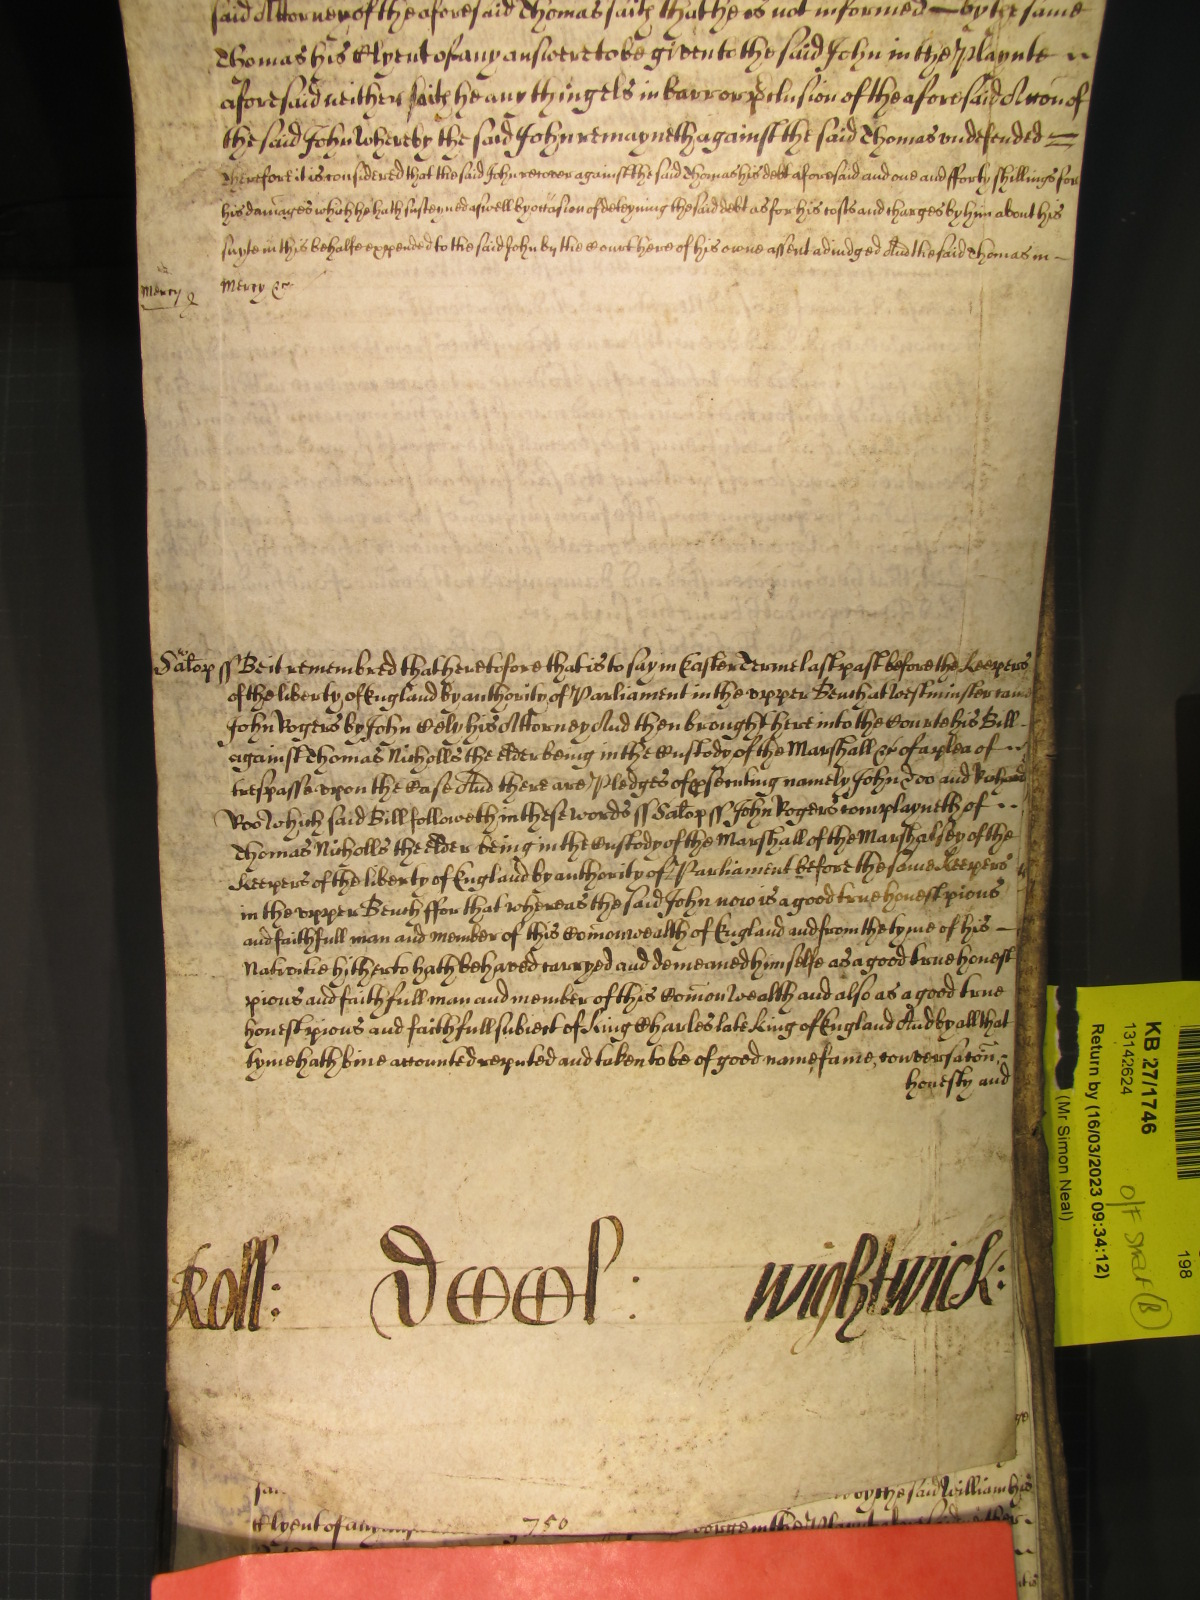 said Attorney of the aforesaid Thomas saith that he is not informed — by the same
Thomas his Clyent of any answere to be given to the said John in the Playnte
aforesaid neither saith he any thing els in barr or pclusion of the aforesaid Accon of
the said John whereby the said John remayneth against the said Thomas undefended
Therefore it is considered that the said John recover against the said Thomas his debt aforesaid and one and fforty shillings for
his damages which he hath susteyned aswell by occasion of deteyning the said debt as for his costs and charges by him about his
suyte in this behalfe expended to the said John by the Court here of his owne assent adiudged And the said Thomas in —
Mercy
Mercy &c
Salop ss Be it remembred that heretofore that is to say in Easter Terme last past before the Keepers
of the liberty of England by authority of Parliament in the upper Bench at Westminster came
John Rogers by John Cely his Attorney And then brought here into the Courte his Bill
against Thomas Nicholls the elder being in the Custody of the Marshall &c of a plea of
trespasse upon the Case And there are Pledges of psecuting namely John Doo and Richard
Roo Which said Bill followeth in these words ss Salop ss John Rogers complayneth of
Thomas Nicholls the elder being in the Custody of the Marshall of the Marshalsey of the
Keepers of the liberty of England by authority of Parliament before the same Keepers
in the upper Bench ffor that whereas the said John now is a good true honest pious
and faithfull man and member of this Comonwealth of England and from the tyme of his —
Nativitie hitherto hath behaved carryed and demeaned himselfe as a good true honest
pious and faithfull man and member of this Comon Wealth and also as a good true
honest pious and faithfull subiect of King Charles late King of England And by all that
tyme hath bine accounted reputed and taken to be of good name fame, conversacon,
honesty and
Roll:
Wightwick:
by the said William his
Clyent of any
750
KB 27/1746
13142624
Return by (16/03/2023 09:34:12)
(Mr Simon Neal)
198
O/F
B